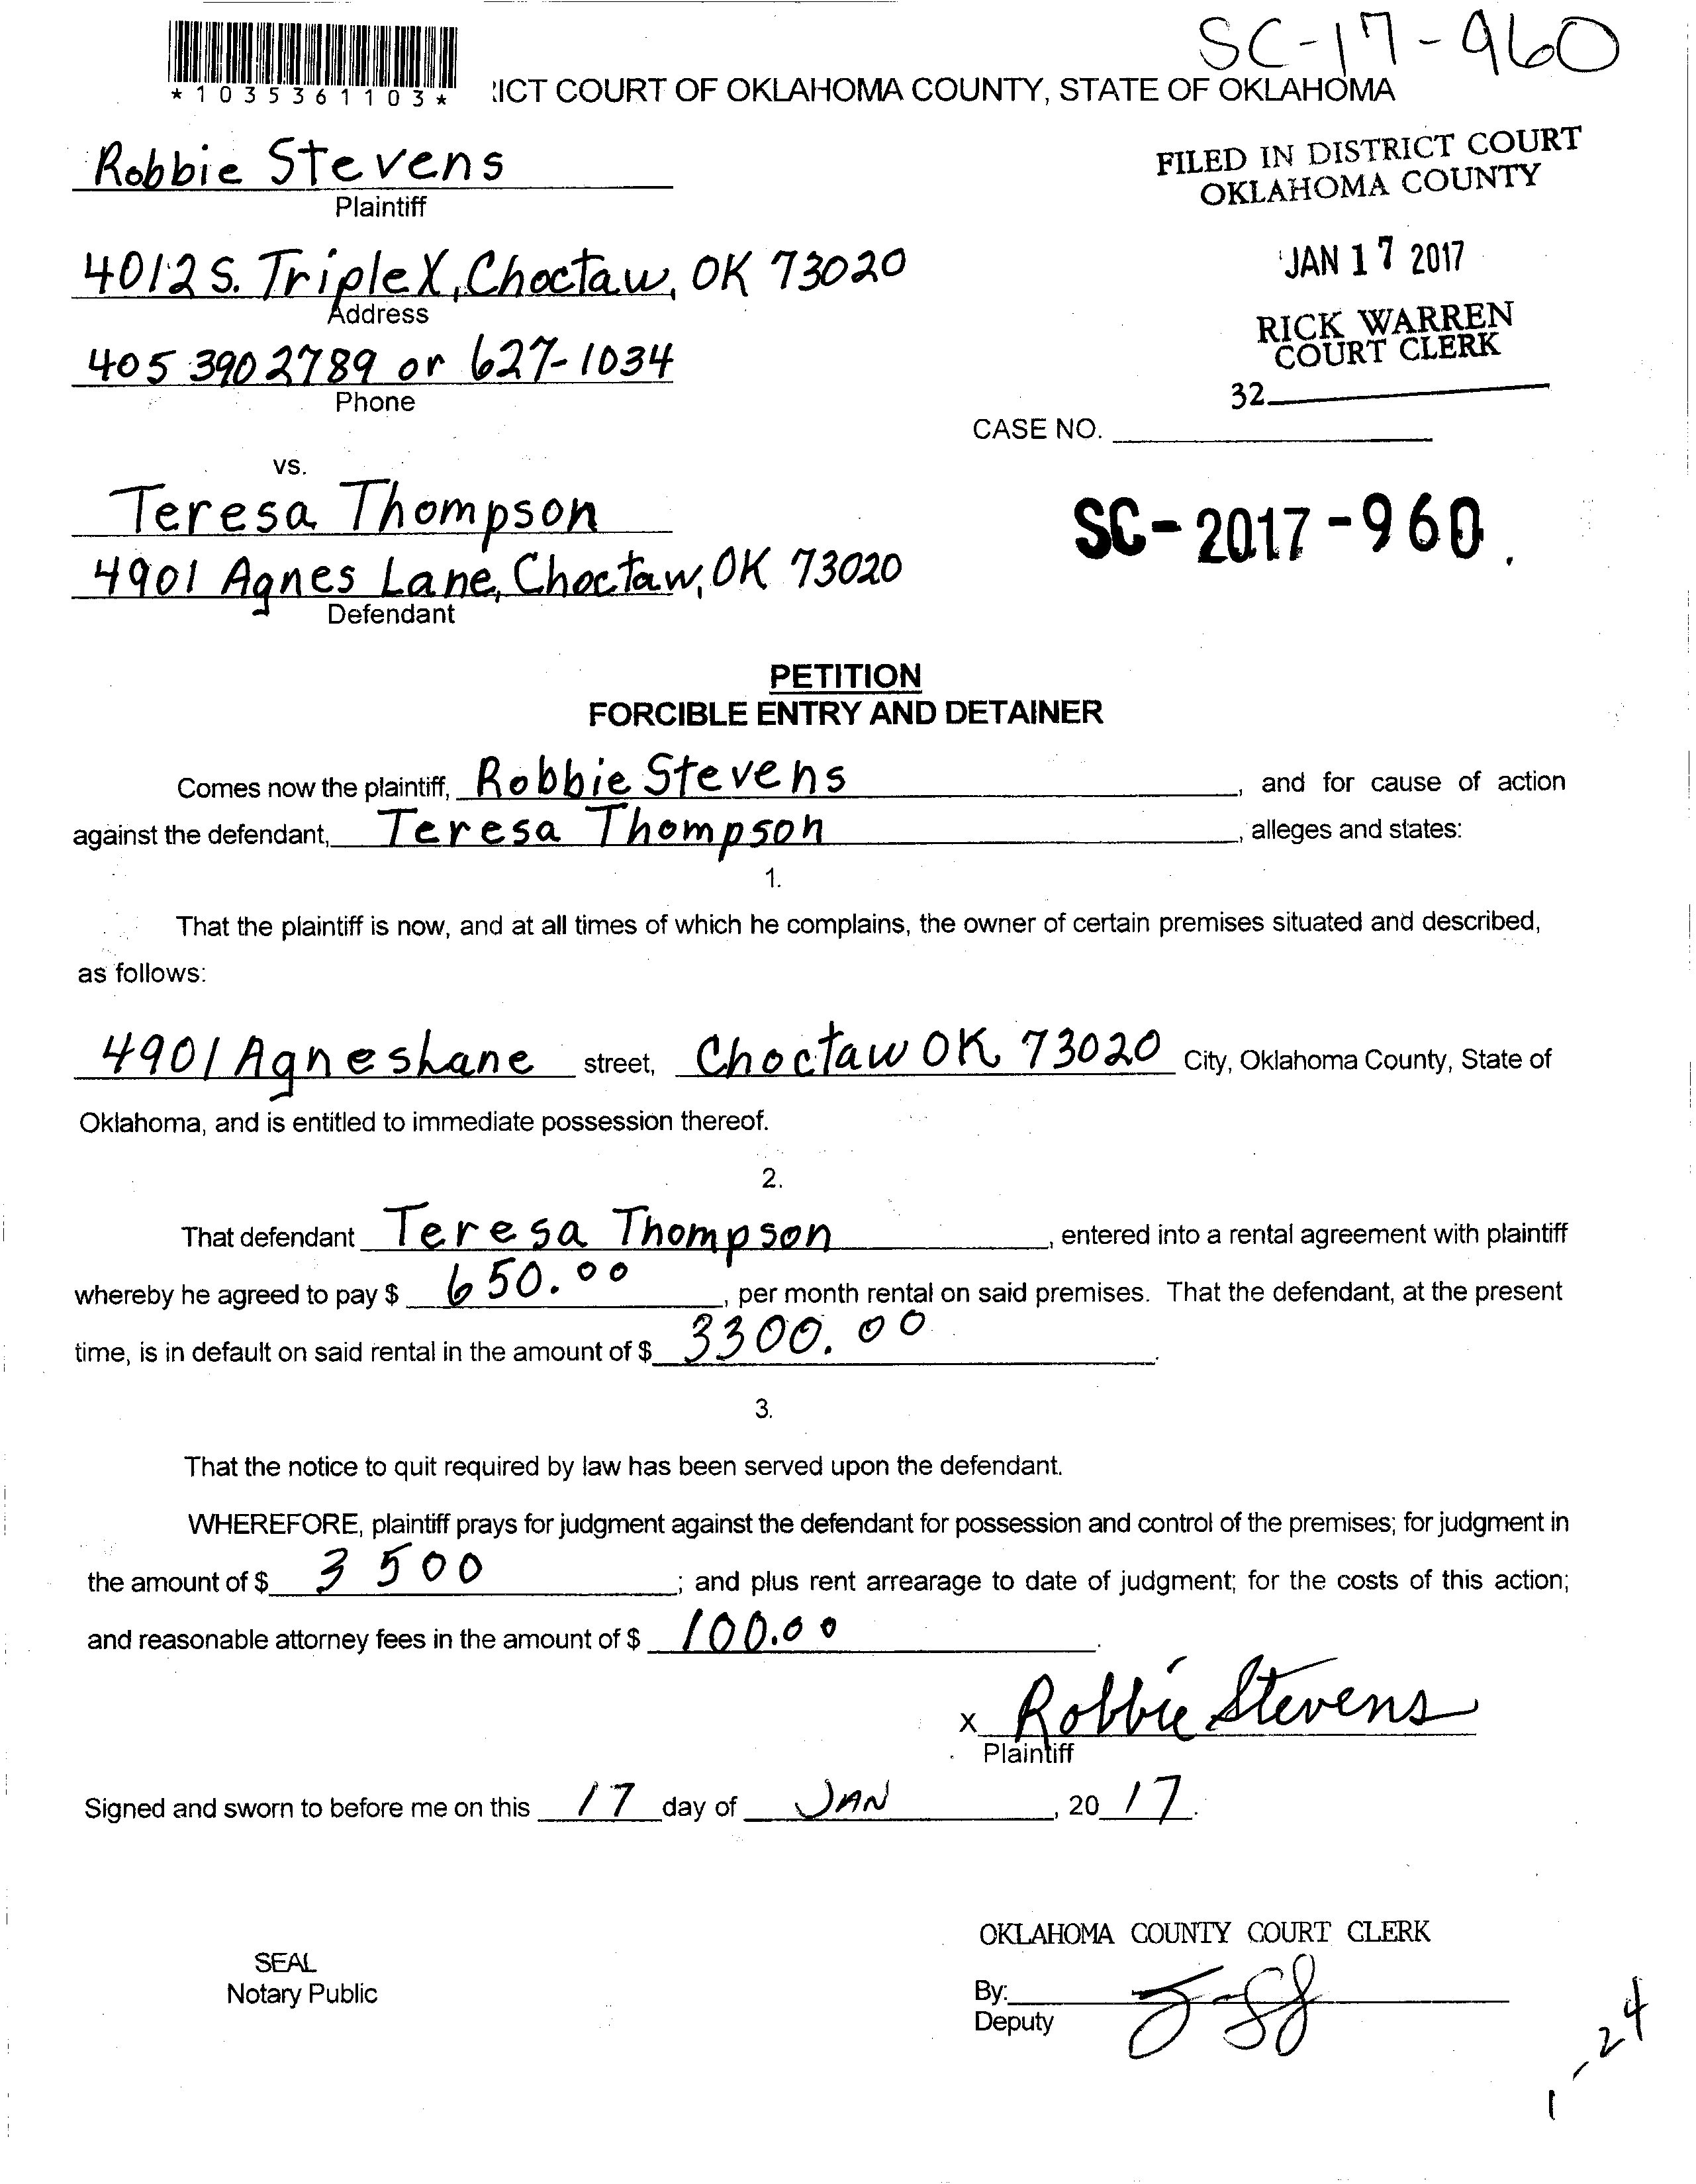 SC-17-960
*1035361103*
ICT COURT OF OKLAHOMA COUNTY, STATE OF OKLAHOMA
Robbie Stevens
Plaintiff
FILED IN DISTRICT COURT
OKLAHOMA COUNTY
4012 S. Triple X, Choctaw, OK 73020
Address
JAN 17 2017
RICK WARREN
COURT CLERK
405 390 2789 or 627-1034
Phone
32
CASE NO.
vs.
Teresa Thompson
SC-2017-960.
4901 Agnes Lane, Choctaw, OK 73020
Defendant
PETITION
FORCIBLE ENTRY AND DETAINER
Comes now the plaintiff, Robbie Stevens, and for cause of action
against the defendant, Teresa Thompson, alleges and states:
1.
That the plaintiff is now, and at all times of which he complains, the owner of certain premises situated and described,
as follows:
4901 Agnes Lane street, Choctaw OK 73020 City, Oklahoma County, State of
Oklahoma, and is entitled to immediate possession thereof.
2.
That defendant Teresa Thompson, entered into a rental agreement with plaintiff
whereby he agreed to pay $ 650.00, per month rental on said premises. That the defendant, at the present
time, is in default on said rental in the amount of $ 3300.00.
3.
That the notice to quit required by law has been served upon the defendant.
WHEREFORE, plaintiff prays for judgment against the defendant for possession and control of the premises; for judgment in
the amount of $ 3500; and plus rent arrearage to date of judgment; for the costs of this action;
and reasonable attorney fees in the amount of $ 100.00.
X Robbie Stevens
Plaintiff
Signed and sworn to before me on this 17 day of JAN, 2017.
OKLAHOMA COUNTY COURT CLERK
SEAL
Notary Public
By:
Deputy
1-24